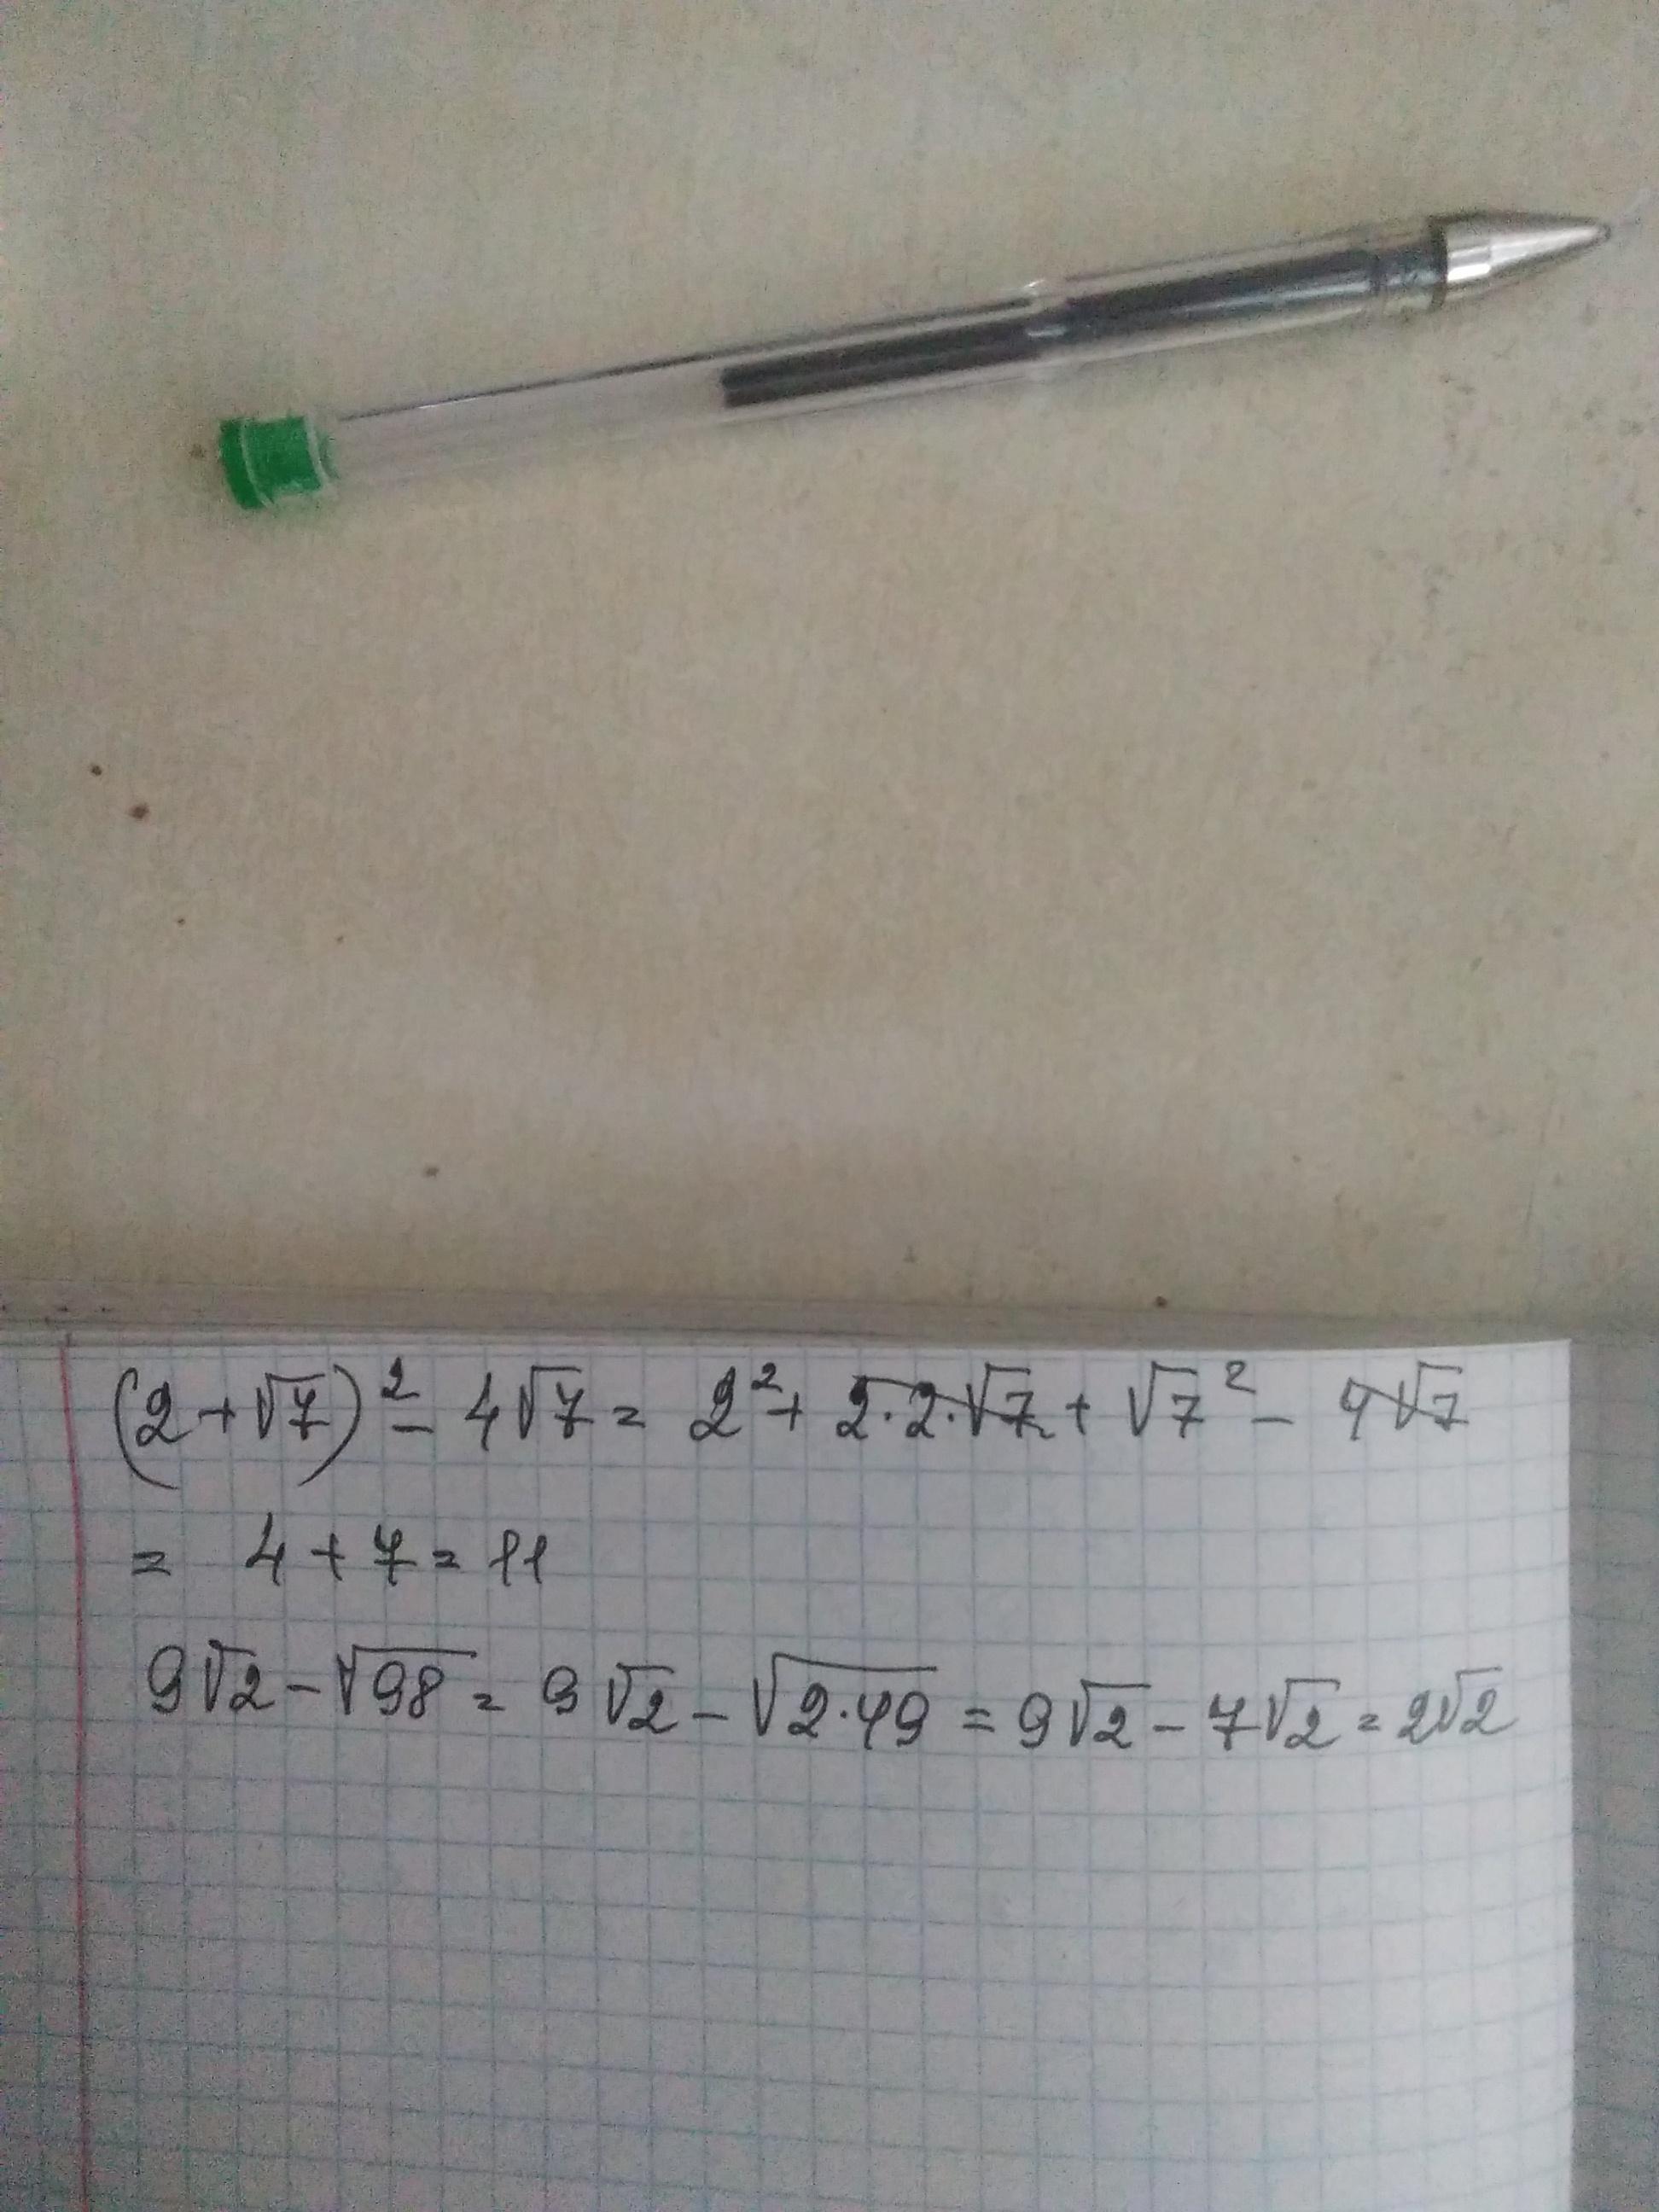 (2+√7)² - 4√7 = 2² + 2·2·√7 + √7² - 4√7
= 4 + 7 = 11
9√2 - √98 = 9√2 - √2·49 = 9√2 - 7√2 = 2√2